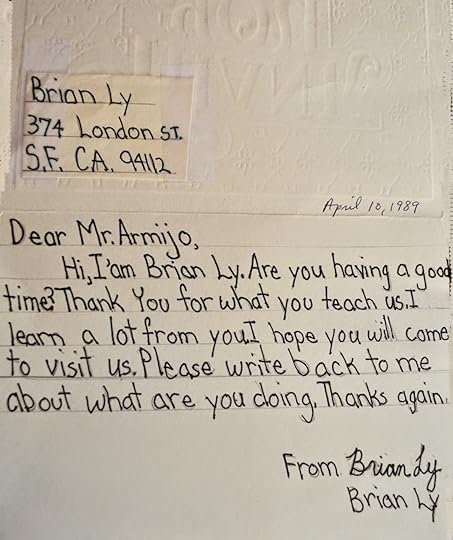 Brian Ly
374 London ST.
S.F. CA. 94112
April 10, 1989
Dear Mr. Armijo,
Hi, I'am Brian Ly. Are you having a good
time? Thank You for what you teach us. I
learn a lot from you. I hope you will come
to visit us. Please write back to me
about what are you doing. Thanks again.
From Brian Ly
Brian Ly